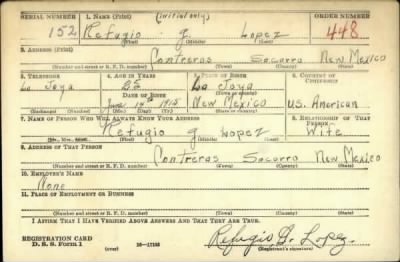 SERIAL NUMBER 1. NAME (Print) (initial only) ORDER NUMBER
152 Refugio g Lopez 448
(First) (Middle) (Last)
2. ADDRESS (Print)
Contreras Socorro New Mexico
(Number and street or R. F. D. number) (Town) (County) (State)
3. TELEPHONE 4. AGE IN YEARS 5. PLACE OF BIRTH 6. COUNTRY OF CITIZENSHIP
La Joya 25 La Joya
DATE OF BIRTH
19th 1915 New Mexico U.S. American
(Exchange) (Number) (Mo.) (Day) (Yr.) (State or country)
7. NAME OF PERSON WHO WILL ALWAYS KNOW YOUR ADDRESS 8. RELATIONSHIP OF THAT PERSON
Refugio g Lopez Wife
(Mr., Mrs., Miss) (First) (Middle) (Last)
9. ADDRESS OF THAT PERSON
Contreras Socorro New Mexico
(Number and street or R. F. D. number) (Town) (County) (State)
10. EMPLOYER'S NAME
None
11. PLACE OF EMPLOYMENT OR BUSINESS
(Number and street or R. F. D. number) (Town) (County) (State)
I AFFIRM THAT I HAVE VERIFIED ABOVE ANSWERS AND THAT THEY ARE TRUE.
REGISTRATION CARD
D. S. S. FORM 1 (over) 16—17105 Refugio G. Lopez.
(Registrant's signature)